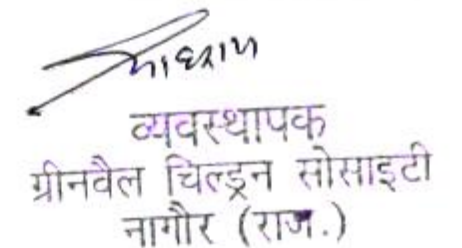 व्यवस्थापक
ग्रीनवैल चिल्ड्रन सोसाइटी
नागौर (राज.)